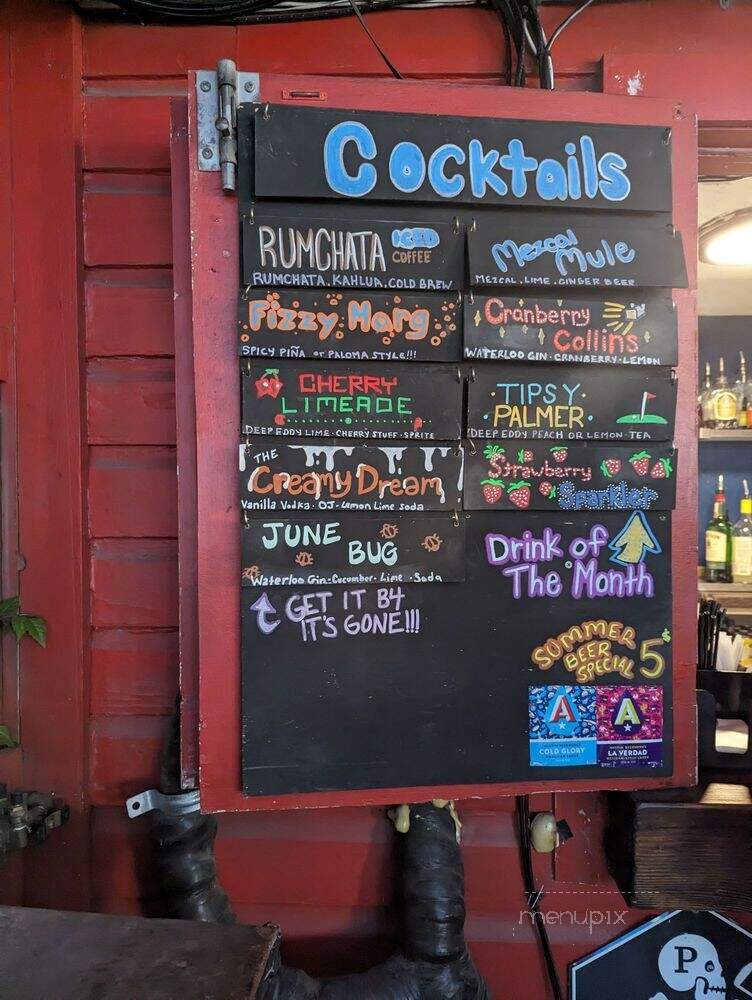 Cocktails
RUMCHATA ICED
COFFEE
RUMCHATA, KAHLUA, COLD BREW
Mezcal
Mule
MEZCAL. LIME. GINGER BEER
Fizzy Marg
SPICY PIÑA or PALOMA STYLE!!!
Cranberry
Collins
WATERLOO GIN · CRANBERRY · LEMON
CHERRY
LIMEADE
DEEP EDDY LIME · CHERRY STUFF · SPRITE
TIPSY
PALMER
DEEP EDDY PEACH OR LEMON · TEA
THE
Creamy Dream
Vanilla Vodka · OJ · Lemon Lime soda
Strawberry
Sparkler
JUNE
BUG
Waterloo Gin · Cucumber · Lime · Soda
Drink of
The Month
GET IT B4
IT'S GONE!!!
SUMMER
BEER
SPECIAL 5$
A
COLD GLORY
A
LA VERDAD
menupix
P